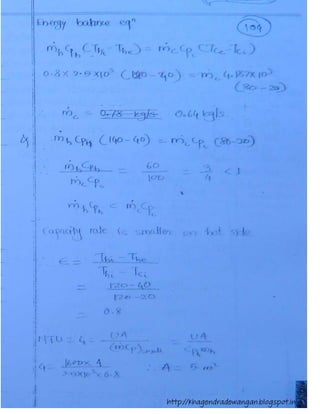 Energy balance eqⁿ
109
ṁh Cph (Thi - The) = ṁc Cpc (Tce - Tci)
0.8 × 2.5×10³ (120 - 40) = ṁc 4.187×10³
(80 - 20)
∴ ṁc = 0.78 kg/s 0.64 kg/s
ṁh Cph (140 - 40) = ṁc Cpc (80-20)
∴ ṁh Cph / ṁc Cpc = 60 / 100 = 3 / 4 < 1
ṁh Cph < ṁc Cpc
Capacity rate is smaller on hot side
∴ ε = Thi - The / Thi - Tci
= 120 - 40 / 120 - 20
= 0.8
NTU = 4 = UA / (ṁCp)small = UA / Cph ṁh
4 = A / 2.5×10³×0.8 ∴ A = 5 m²
http://khagendradewangan.blogspot.in